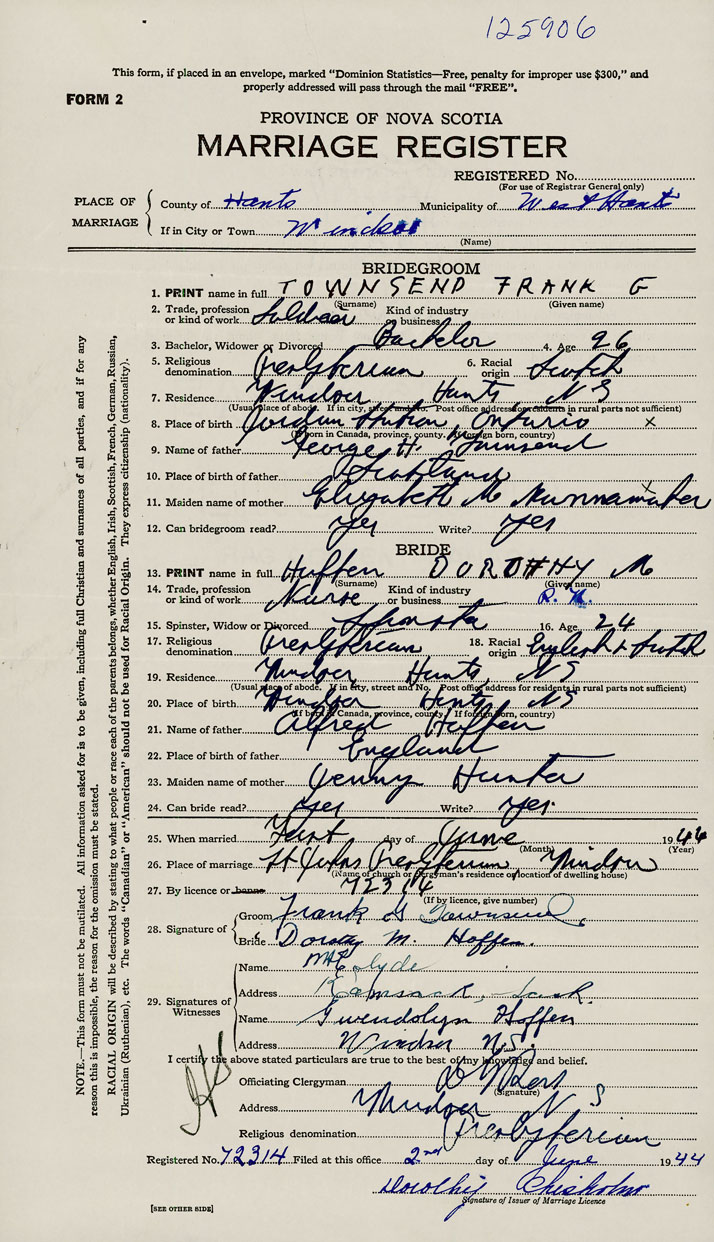 125906
This form, if placed in an envelope, marked "Dominion Statistics—Free, penalty for improper use $300," and
properly addressed will pass through the mail "FREE".
FORM 2
PROVINCE OF NOVA SCOTIA
MARRIAGE REGISTER
REGISTERED No.
(For use of Registrar General only)
PLACE OF MARRIAGE
County of Hants Municipality of West Hants
If in City or Town Windsor
(Name)
BRIDEGROOM
1. PRINT name in full TOWNSEND FRANK G
(Surname) (Given name)
2. Trade, profession or kind of work Soldier Kind of industry or business
3. Bachelor, Widower or Divorced Bachelor 4. Age 26
5. Religious denomination Presbyterian 6. Racial origin Scotch
7. Residence Windsor Hants N S
(Usual place of abode. If in city, street and No. Post office address for residents in rural parts not sufficient)
8. Place of birth Jordan Ontario x
(If born in Canada, province, county. If foreign born, country)
9. Name of father George H. Townsend
10. Place of birth of father Scotland
11. Maiden name of mother Elizabeth M Nunnamaker x
12. Can bridegroom read? Yes Write? Yes
BRIDE
13. PRINT name in full Hoffen DOROTHY M
(Surname) (Given name)
14. Trade, profession or kind of work Nurse Kind of industry or business R. N.
15. Spinster, Widow or Divorced Spinster 16. Age 24
17. Religious denomination Presbyterian 18. Racial origin English & Scotch
19. Residence Windsor Hants NS
(Usual place of abode. If in city, street and No. Post office address for residents in rural parts not sufficient)
20. Place of birth Windsor Hants NS
(If born in Canada, province, county. If foreign born, country)
21. Name of father Alfred Hoffen
22. Place of birth of father England
23. Maiden name of mother Jenny Hunter
24. Can bride read? Yes Write? Yes.
25. When married First day of June 1944
(Month) (Year)
26. Place of marriage St Johns Presbyterian Windsor
(Name of church or clergyman's residence or location of dwelling house)
27. By licence or banns 72314
(If by licence, give number)
28. Signature of
Groom Frank G Townsend.
Bride Dorothy M. Hoffen.
29. Signatures of Witnesses
Name Clyde
Address Kamsack, Sask.
Name Gwendolyn Hoffen
Address Windsor N.S.
I certify the above stated particulars are true to the best of my knowledge and belief.
Officiating Clergyman
(Signature)
Address Windsor N S
Religious denomination Presbyterian
Registered No. 72314 Filed at this office 2nd day of June 1944
Dorothy Chisholm
Signature of Issuer of Marriage Licence
[SEE OTHER SIDE]
NOTE.—This form must not be mutilated. All information asked for is to be given, including full Christian and surnames of all parties, and if for any
reason this is impossible, the reason for the omission must be stated.
RACIAL ORIGIN will be described by stating to what people or race each of the parents belongs, whether English, Irish, Scottish, French, German, Russian,
Ukrainian (Ruthenian), etc. The words "Canadian" or "American" should not be used for Racial Origin. They express citizenship (nationality).